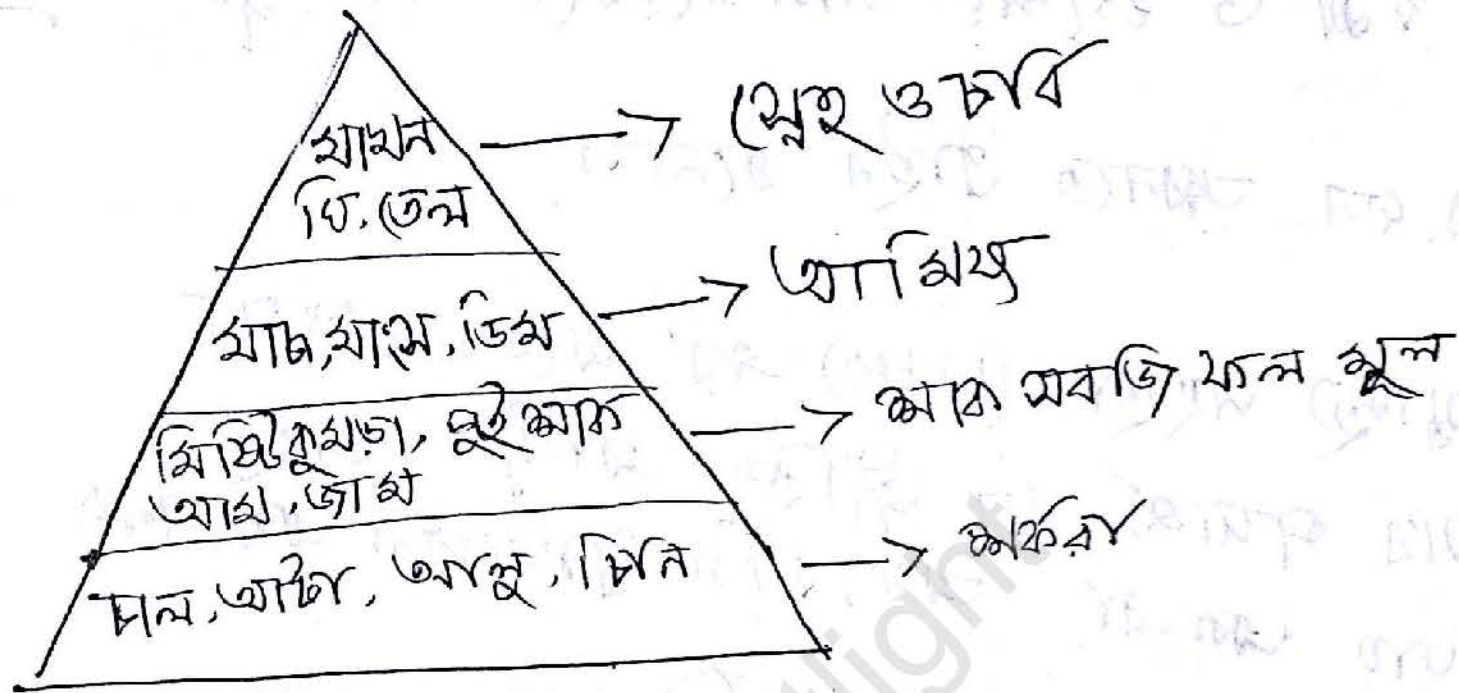 মাখন
ঘি, তেল
স্নেহ ও চর্বি
মাছ, মাংস, ডিম
আমিষ
মিষ্টিকুমড়া, পুইশাক
আম, জাম
শাক সবজি ফল মূল
চাল, আটা, আলু, চিনি
শর্করা